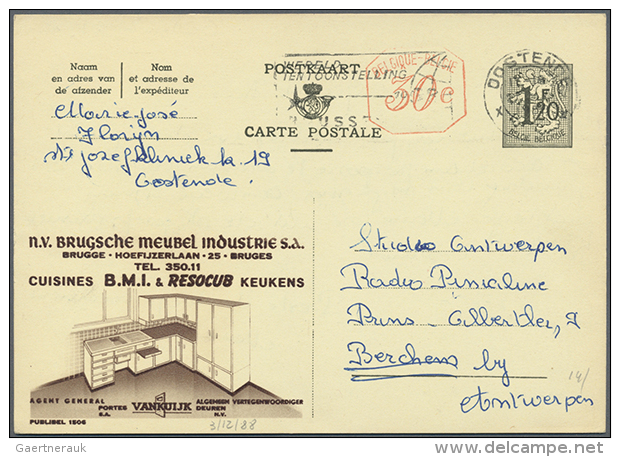 Naam
en adres van
de afzender
Nom
et adresse de
l'expéditeur
POSTKAART
CARTE POSTALE
TENTOONSTELLING
BELGIQUE-BELGIE
30c
OOSTENDE
1F20
BELGIE BELGIQUE
Marie-José
Florijn
St Jozefkliniek k. 19
Oostende.
n.v. BRUGSCHE MEUBEL INDUSTRIE S.A.
BRUGGE · HOEFIJZERLAAN · 25 · BRUGES
TEL. 350.11
CUISINES B.M.I. & RESOCUB KEUKENS
AGENT GENERAL
PORTES
S.A.
VANKUIJK
ALGEMEEN VERTEGENWOORDIGER
DEUREN
N.V.
PUBLIBEL 1506
3/12/88
Studio Antwerpen
Radio
Prins Albertlei, 9
Berchem by
Antwerpen
14/
Gaertnerauk
DELCAMPE.NET